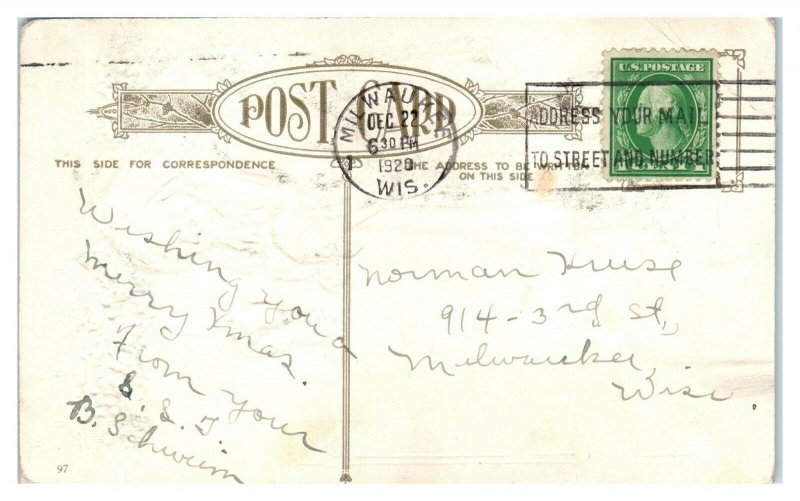 POST CARD
MILWAUKEE
DEC 22
6 30 PM
1920
WIS.
1
U.S. POSTAGE
ADDRESS YOUR MAIL
TO STREET AND NUMBER
THIS SIDE FOR CORRESPONDENCE
THE ADDRESS TO BE WRITTEN
ON THIS SIDE
Wishing you a
merry Xmas.
From your
S. S. T.
B. Schwim
Norman Kruse
914-3rd St,
Milwaukee,
Wisc.
97